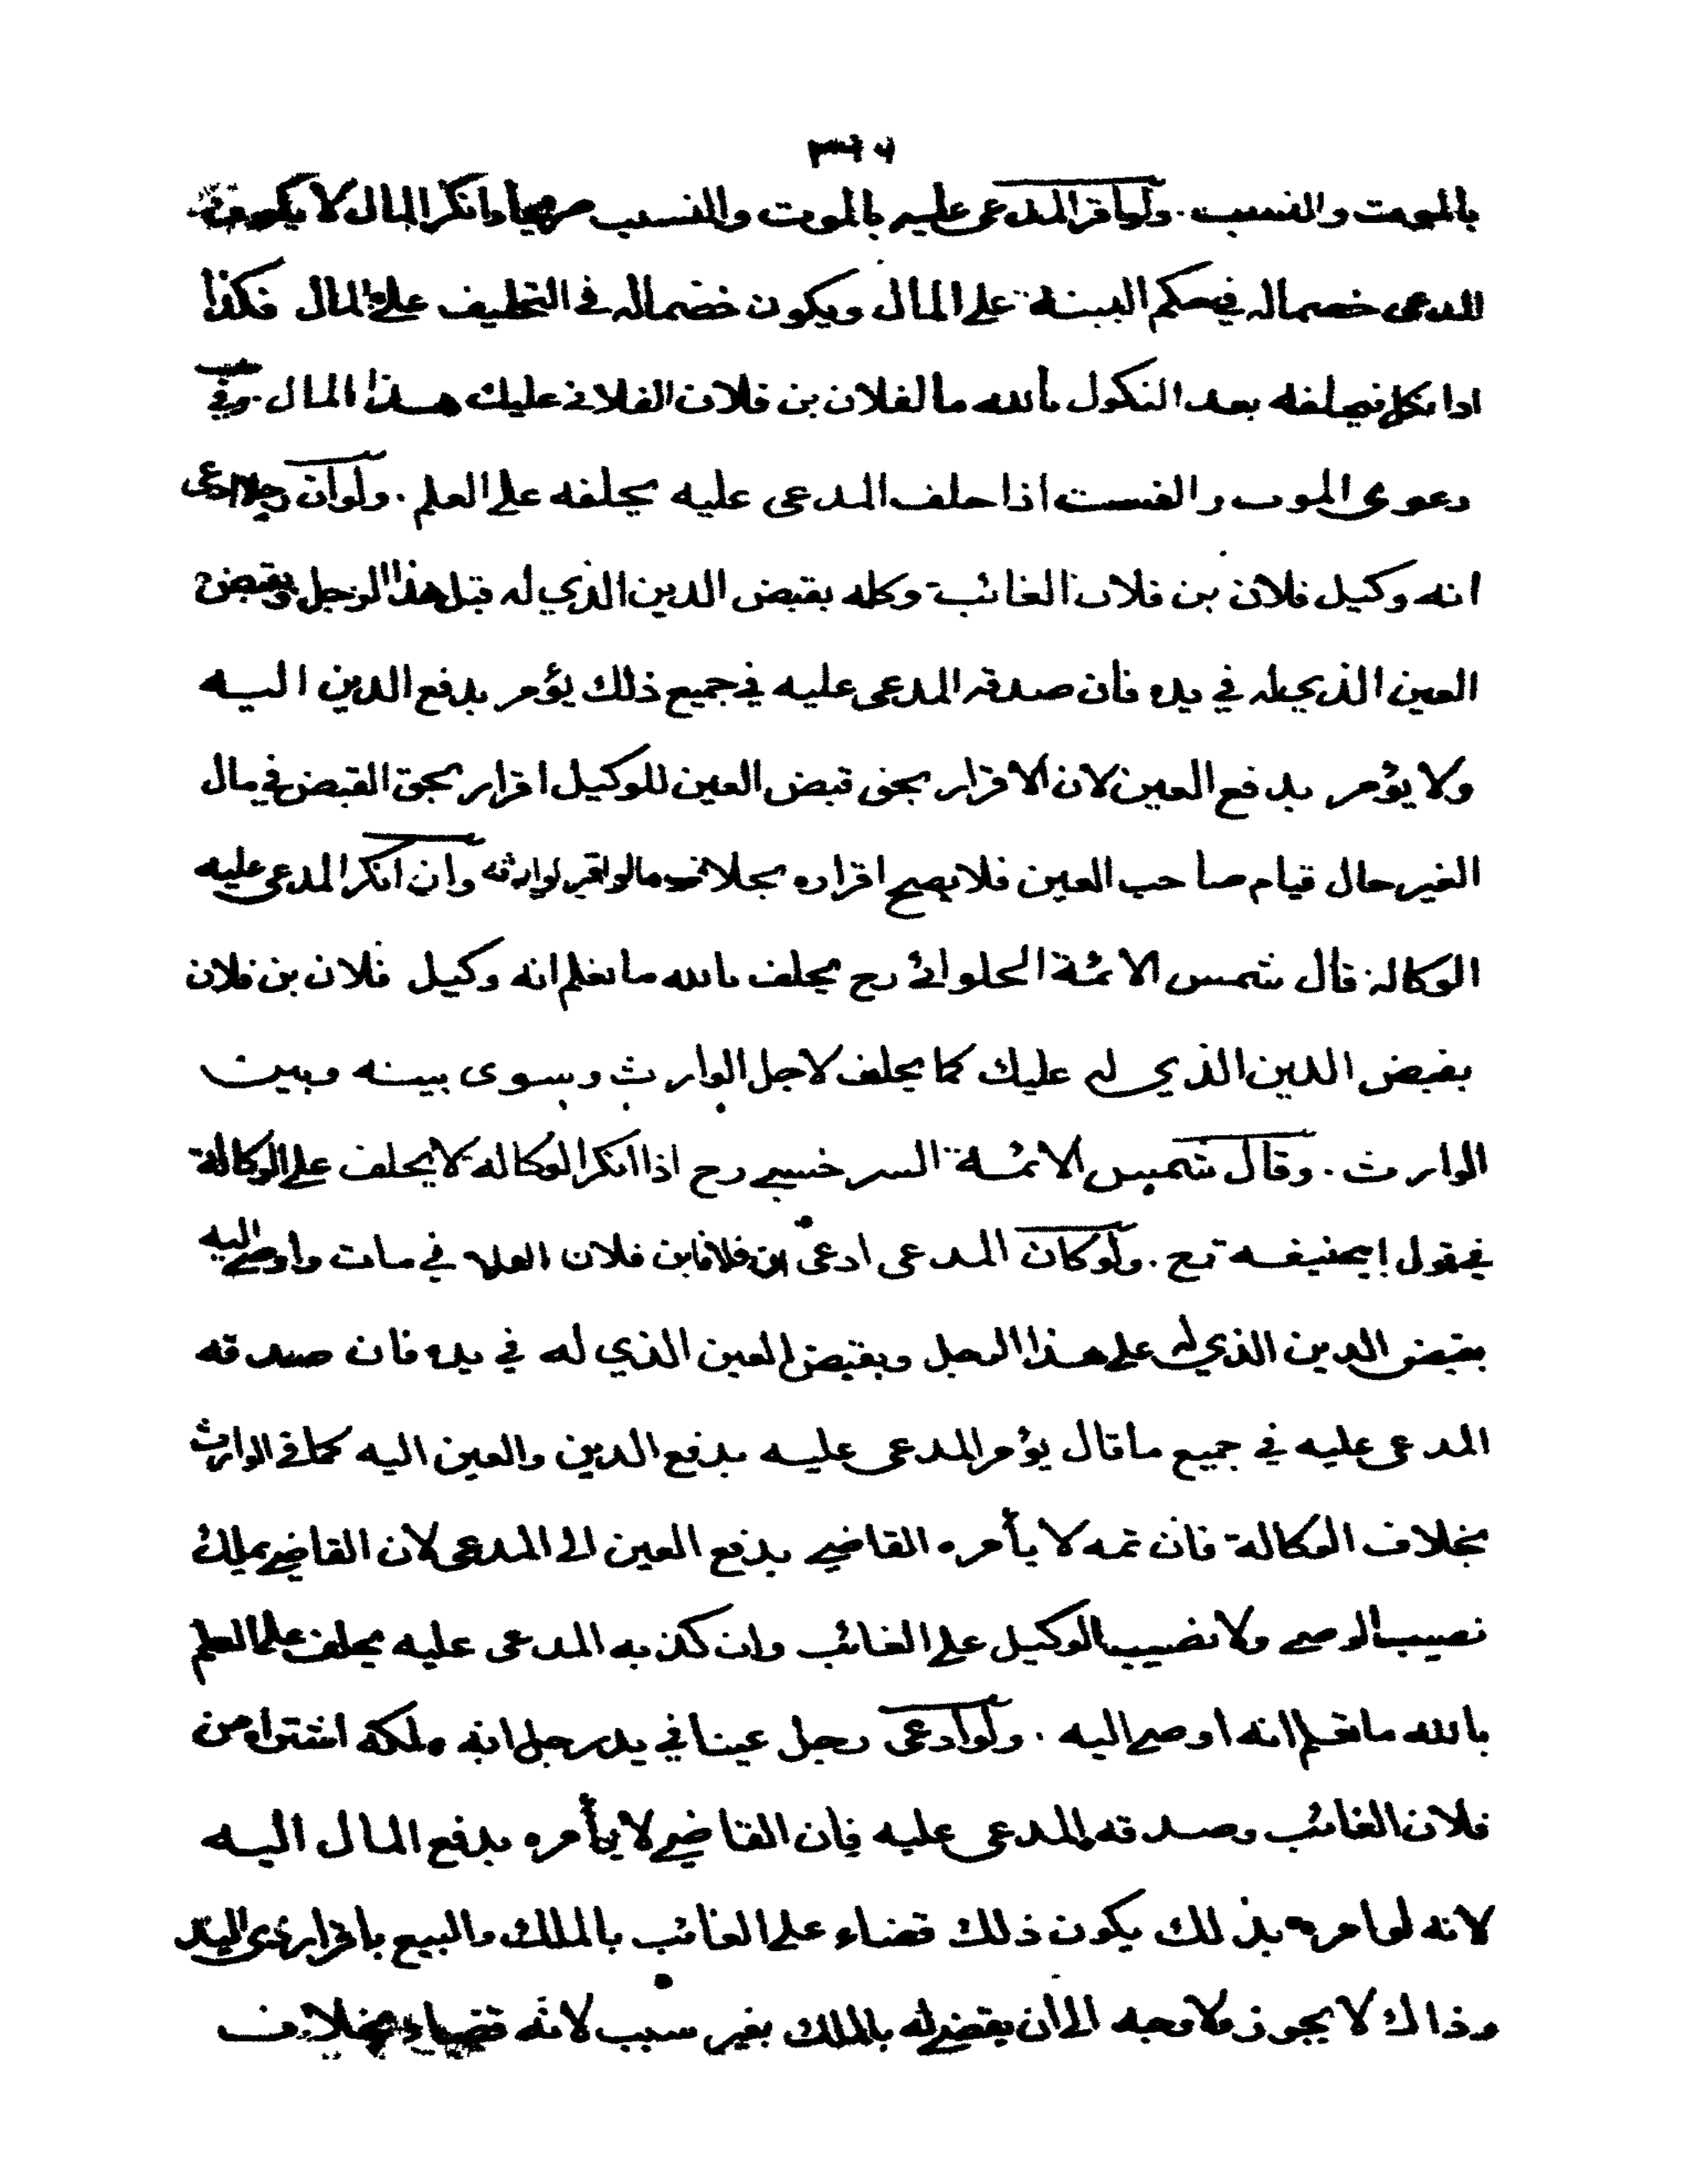 بالموت والنسب. ولو اقر المدعى عليه بالموت والنسب صريحا وانكر المال لا يكون
المدعى خصما له في حكم البينة على المال ويكون خصما له في التحليف على المال فكذا
اذا نكل فيحلفه بعد النكول بالله ما لفلان بن فلان الفلاني عليك هذا المال. وفي
دعوى الموت والنسب اذا حلف المدعى عليه يحلفه على العلم. ولو ان رجلا ادعى
انه وكيل فلان بن فلان الغائب وكله بقبض الدين الذي له قبل هذا الرجل وبقبض
العين الذي له في يده فان صدقه المدعى عليه في جميع ذلك يؤمر بدفع الدين اليه
ولا يؤمر بدفع العين لان الاقرار بحق قبض العين للوكيل اقرار بحق القبض في مال
الغير حال قيام صاحب العين فلا يصح اقراره بخلاف ما لو اقر لوارثه وان انكر المدعى عليه
الوكالة قال شمس الائمة الحلوائي رح يحلف بالله ما تعلم انه وكيل فلان بن فلان
بقبض الدين الذي له عليك كما يحلف لاجل الوارث وسوى بينه وبين
الوارث. وقال شمس الائمة السرخسي رح اذا انكر الوكالة لا يحلف على الوكالة
في قول ابيحنيفه رح. ولو كان المدعى ادعى ان فلانا بن فلان مات واوصى اليه
بقبض الدين الذي له على هذا الرجل وبقبض العين الذي له في يده فان صدقه
المدعى عليه في جميع ما قال يؤمر المدعى عليه بدفع الدين والعين اليه كما في الوارث
بخلاف الوكالة فان ثمه لا يأمره القاضي بدفع العين الى المدعى لان القاضي يملك
نصيب الوصي ولا نصيب الوكيل على الغائب وان كذبه المدعى عليه يحلف على العلم
بالله ما تعلم انه اوصى اليه. ولو ادعى رجل عينا في يد رجل انه ملكه اشتراه من
فلان الغائب وصدقه المدعى عليه فان القاضي لا يأمره بدفع المال اليه
لانه لو امره بذلك يكون ذلك قضاء على الغائب بالملك والبيع باقرار ذي اليد
وذاك لا يجوز ولا وجه الى ان يقضي له بالملك بغير سبب لانه قضاء بخلاف